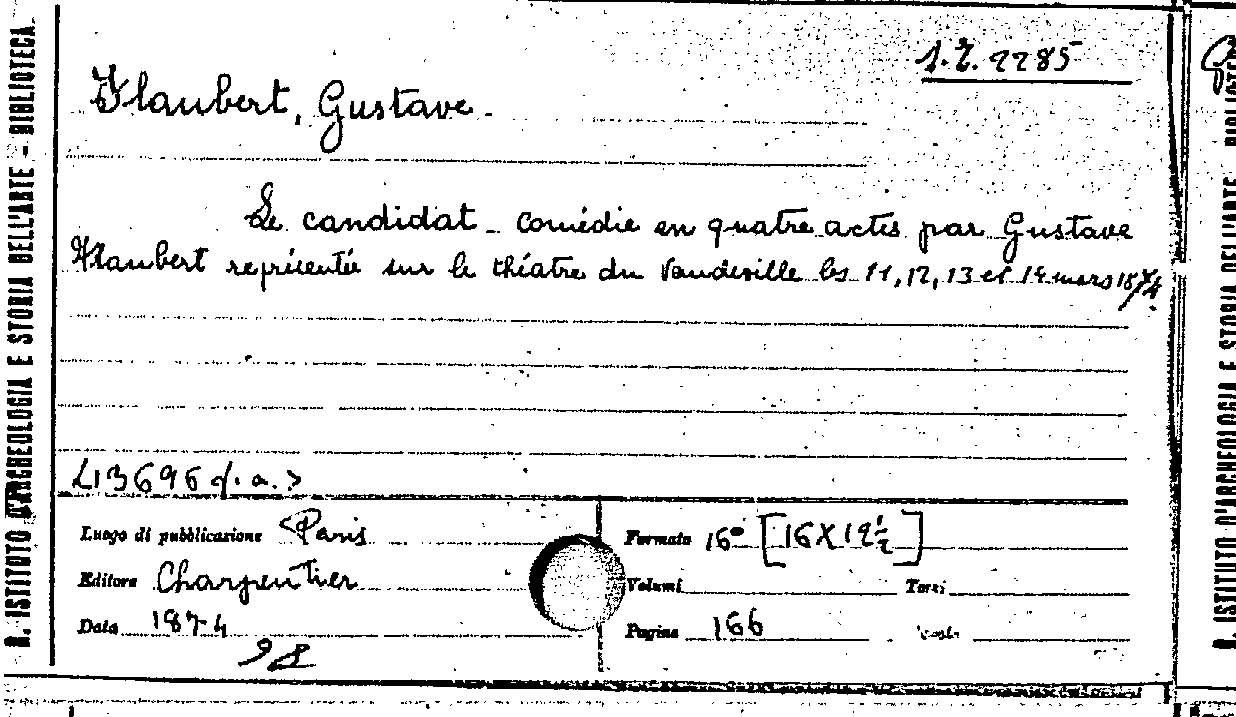 R. ISTITUTO D'ARCHEOLOGIA E STORIA DELL'ARTE - BIBLIOTECA
2285
Flaubert, Gustave.
Le candidat - comédie en quatre actes par Gustave
Flaubert représentée sur le théatre du Vaudeville les 11, 12, 13 et 14 mars 1874.
L13696 (f. a.)
Luogo di pubblicazione Paris
Editore Charpentier
Data 1874
Formato 16° [16 X 12½]
Volumi
Tomi
Pagine 166
R. ISTITUTO D'ARCHEOLOGIA E STORIA DELL'ARTE BIBLIOTECA